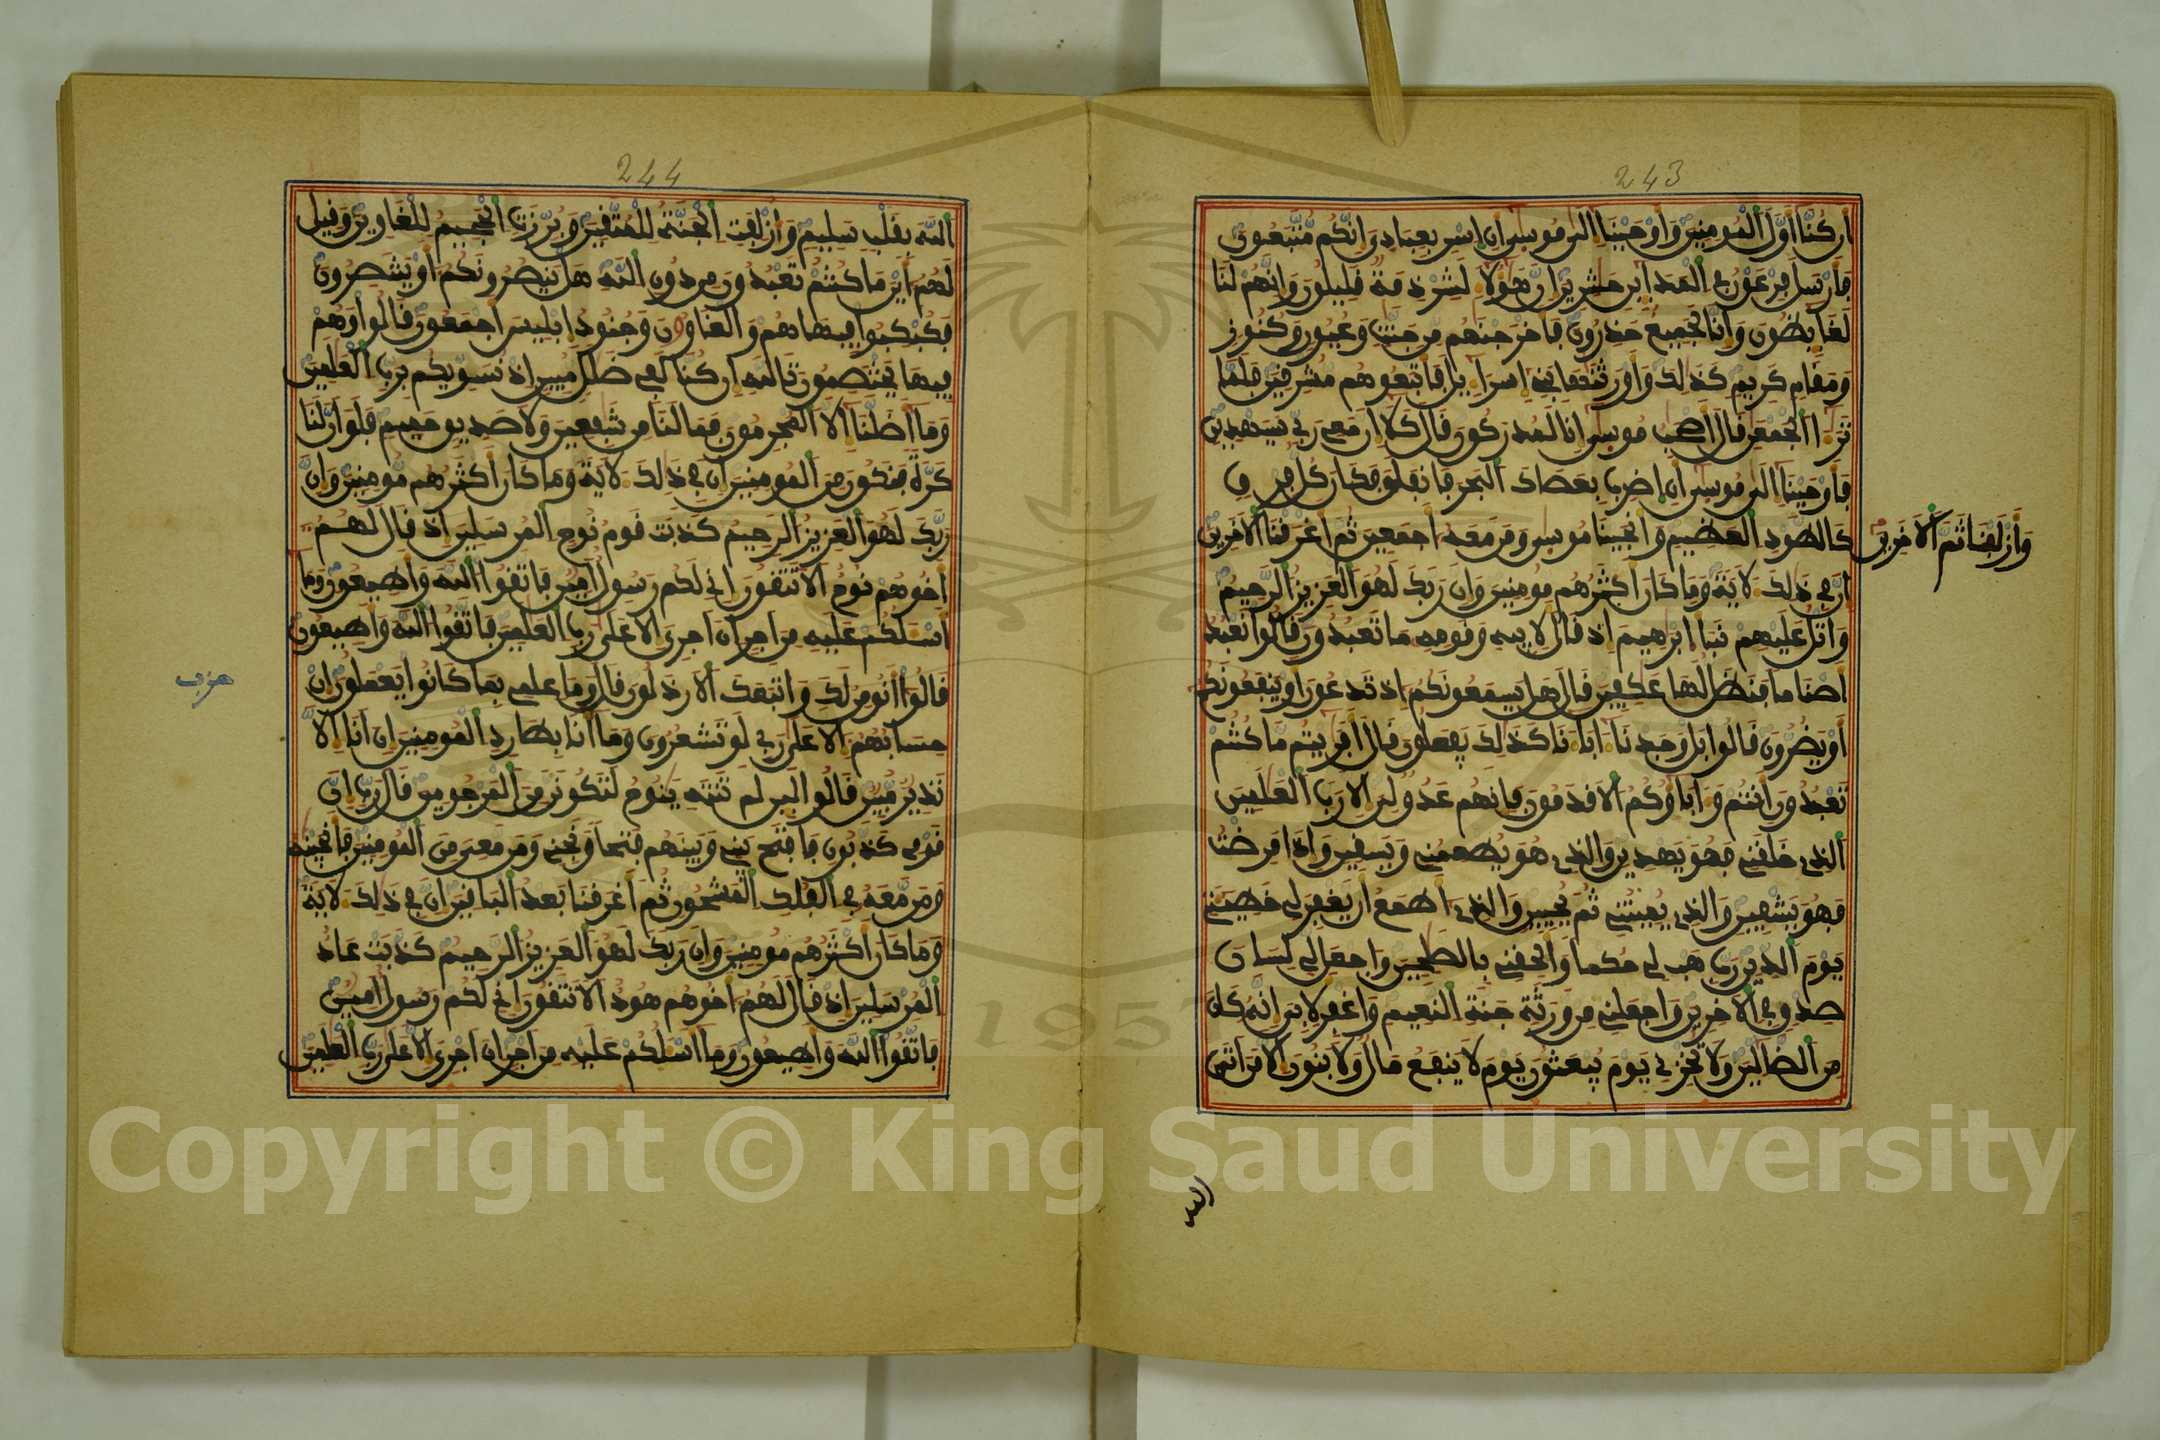 243
ان كنا اول المومنين واوحينا الى موسى ان اسر بعبادي انكم متبعون
فارسل فرعون في المداين حشرين ان هولا لشرذمة فليلون وانهم لنا
لغايظون وانا لجميع حذرون فاخرجنهم من جنت وعيون وكنوز
ومفام كريم كذلك واورثنها بني اسراءيل فاتبعوهم مشرفين فلما
ترءا الجمعن فال اصحب موسى انا لمدركون فال كلا ان معي ربي سيهدين
فاوحينا الى موسى ان اضرب بعصاك البحر فانفلق فكان كل فرق
كالطود العظيم وانجينا موسى ومن معه اجمعين ثم اغرفنا الاخرين
وازلفنا ثم الاخرين
ان في ذلك لاية وما كان اكثرهم مومنين وان ربك لهو العزيز الرحيم
واتل عليهم نبا ابرهيم اذ فال لابيه وفومه ما تعبدون فالوا نعبد
اصناما فنظل لها عكفين فال هل يسمعونكم اذ تدعون او ينفعونكم
او يضرون فالوا بل وجدنا ءاباءنا كذلك يفعلون فال افريتم ما كنتم
تعبدون انتم وءاباوكم الافدمون فانهم عدو لي الا رب العلمين
الذي خلفني فهو يهدين والذي هو يطعمني ويسفين واذا مرضت
فهو يشفين والذي يميتني ثم يحيين والذي اطمع ان يغفر لي خطيتي
يوم الدين رب هب لي حكما والحفني بالصلحين واجعل لي لسان
صدق في الاخرين واجعلني من ورثة جنة النعيم واغفر لابي انه كان
من الضالين ولا تخزني يوم يبعثون يوم لا ينفع مال ولا بنون الا من اتى
الله
244
الله بفلب سليم وازلفت الجنة للمتفين وبرزت الجحيم للغاوين وفيل
لهم اين ما كنتم تعبدون من دون الله هل ينصرونكم او ينتصرون
فكبكبوا فيها هم والغاون وجنود ابليس اجمعون فالوا وهم
فيها يختصمون تالله ان كنا لفي ضلل مبين اذ نسويكم برب العلمين
وما اضلنا الا المجرمون فما لنا من شفعين ولا صديق حميم فلو ان لنا
كرة فنكون من المومنين ان في ذلك لاية وما كان اكثرهم مومنين وان
ربك لهو العزيز الرحيم كذبت فوم نوح المرسلين اذ فال لهم
اخوهم نوح الا تتفون اني لكم رسول امين فاتفوا الله واطيعون وما
اسلكم عليه من اجر ان اجري الا على رب العلمين فاتفوا الله واطيعون
حزب
فالوا انومن لك واتبعك الارذلون فال وما علمي بما كانوا يعملون ان
حسابهم الا على ربي لو تشعرون وما انا بطارد المومنين ان انا الا
نذير مبين فالوا لين لم تنته ينوح لتكونن من المرجومين فال رب ان
فومي كذبون فافتح بيني وبينهم فتحا ونجني ومن معي من المومنين فانجينه
ومن معه في الفلك المشحون ثم اغرفنا بعد البافين ان في ذلك لاية
وما كان اكثرهم مومنين وان ربك لهو العزيز الرحيم كذبت عاد
المرسلين اذ فال لهم اخوهم هود الا تتفون اني لكم رسول امين
فاتفوا الله واطيعون وما اسلكم عليه من اجر ان اجري الا على رب العلمين
1957
Copyright © King Saud University